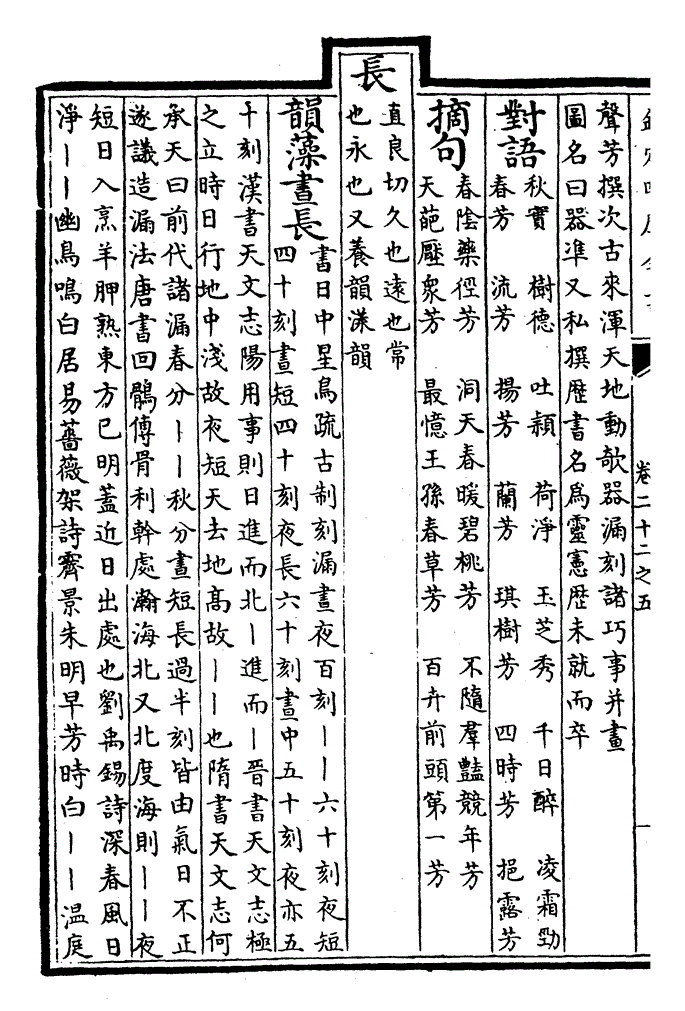 卷二十二之五
聲芳撰次古來渾天地動欹器漏刻諸巧事并畫
圖名曰器凖又私撰歴書名為靈憲歴未就而卒
對語
秋實 樹德 吐穎 荷淨 玉芝秀 千日醉 凌霜勁
春芳 流芳 揚芳 蘭芳 琪樹芳 四時芳 挹露芳
摘句
春陰藥徑芳 洞天春暖碧桃芳 不隨羣豔競年芳
天葩壓衆芳 最憶王孫春草芳 百卉前頭第一芳
長
直良切久也遠也常
也永也又養韻漾韻
韻藻晝長
書日中星鳥疏古制刻漏晝夜百刻〡〡六十刻夜短
四十刻晝短四十刻夜長六十刻晝中五十刻夜亦五
十刻漢書天文志陽用事則日進而北〡進而〡晉書天文志極
之立時日行地中淺故夜短天去地高故〡〡也隋書天文志何
承天曰前代諸漏春分〡〡秋分晝短長過半刻皆由氣日不正
遂議造漏法唐書回鶻傳骨利幹處瀚海北又北度海則〡〡夜
短日入烹羊胛熟東方已明蓋近日出處也劉禹錫詩深春風日
淨〡〡幽鳥鳴白居易薔薇架詩霽景朱明早芳時白〡〡温庭